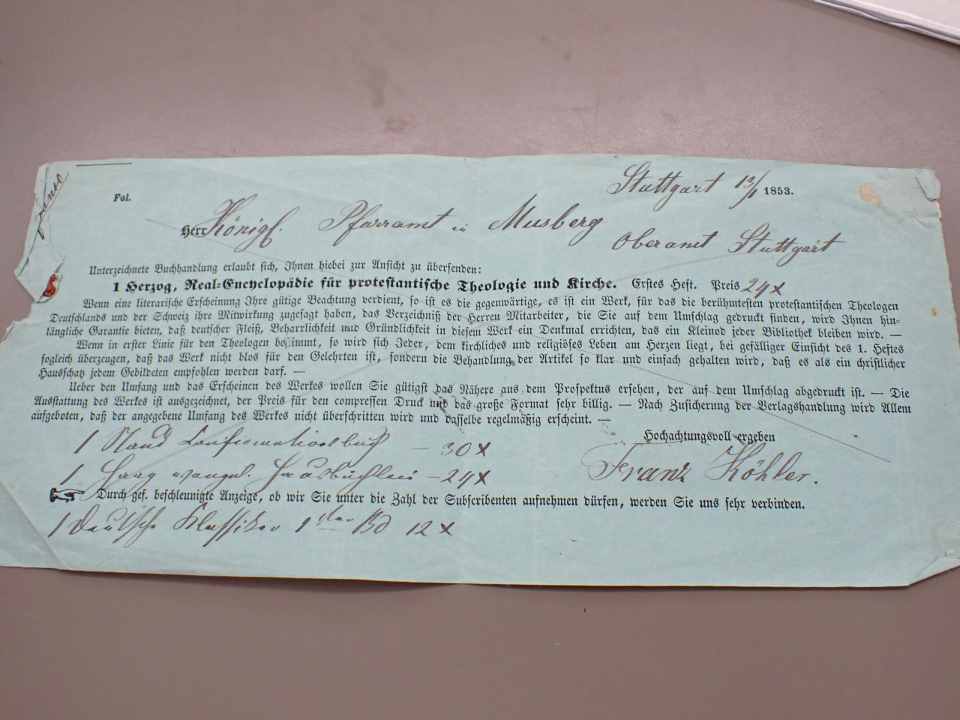 Stuttgart 13/1 1853.
Fol.
Herr Königl. Pfarramt in Musberg
Oberamt Stuttgart
Unterzeichnete Buchhandlung erlaubt sich, Ihnen hiebei zur Ansicht zu übersenden:
1 Herzog, Real-Encyclopädie für protestantische Theologie und Kirche. Erstes Heft. Preis 24x
Wenn eine literarische Erscheinung Ihre gütige Beachtung verdient, so ist es die gegenwärtige, es ist ein Werk, für das die berühmtesten protestantischen Theologen
Deutschlands und der Schweiz ihre Mitwirkung zugesagt haben, das Verzeichniß der Herren Mitarbeiter, die Sie auf dem Umschlag gedruckt finden, wird Ihnen hin-
längliche Garantie bieten, daß deutscher Fleiß, Beharrlichkeit und Gründlichkeit in diesem Werk ein Denkmal errichten, das ein Kleinod jeder Bibliothek bleiben wird. —
Wenn in erster Linie für den Theologen bestimmt, so wird sich Jeder, dem kirchliches und religiöses Leben am Herzen liegt, bei gefälliger Einsicht des 1. Heftes
sogleich überzeugen, daß das Werk nicht blos für den Gelehrten ist, sondern die Behandlung der Artikel so klar und einfach gehalten wird, daß es als ein christlicher
Hausschatz jedem Gebildeten empfohlen werden darf. —
Ueber den Umfang und das Erscheinen des Werkes wollen Sie gütigst das Nähere aus dem Prospektus ersehen, der auf dem Umschlag abgedruckt ist. — Die
Ausstattung des Werkes ist ausgezeichnet, der Preis für den compressen Druck und das große Format sehr billig. — Nach Zusicherung der Verlagshandlung wird Allem
aufgeboten, daß der angegebene Umfang des Werkes nicht überschritten wird und dasselbe regelmäßig erscheint. —
Hochachtungsvoll ergeben
1 Confirmationsbuch — 30x
Franz Köhler.
1 evangel. Hausbüchlein — 24x
Durch gef. beschleunigte Anzeige, ob wir Sie unter die Zahl der Subscribenten aufnehmen dürfen, werden Sie uns sehr verbinden.
1 Deutsche Klassiker 1ster Bd 12x